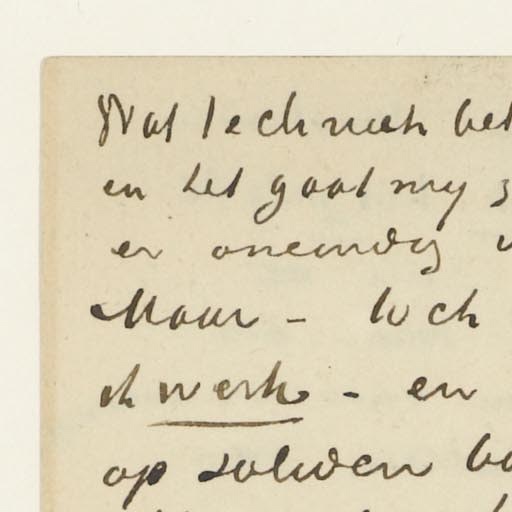 Wat techniek bet
en het gaat my z
er oneindig v
Maar – toch
ik werk – en
op solieden ba